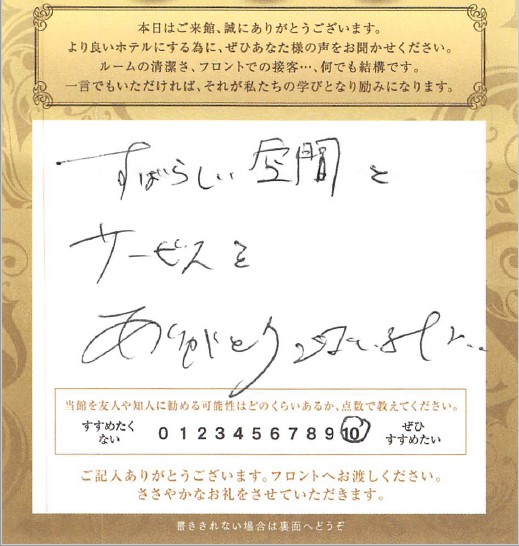 本日はご来館、誠にありがとうございます。
より良いホテルにする為に、ぜひあなた様の声をお聞かせください。
ルームの清潔さ、フロントでの接客…、何でも結構です。
一言でもいただければ、それが私たちの学びとなり励みになります。
すばらしい空間と
サービスを
ありがとうございました…
当館を友人や知人に勧める可能性はどのくらいあるか、点数で教えてください。
すすめたくない 0 1 2 3 4 5 6 7 8 9 10 ぜひすすめたい
ご記入ありがとうございます。フロントへお渡しください。
ささやかなお礼をさせていただきます。
書ききれない場合は裏面へどうぞ